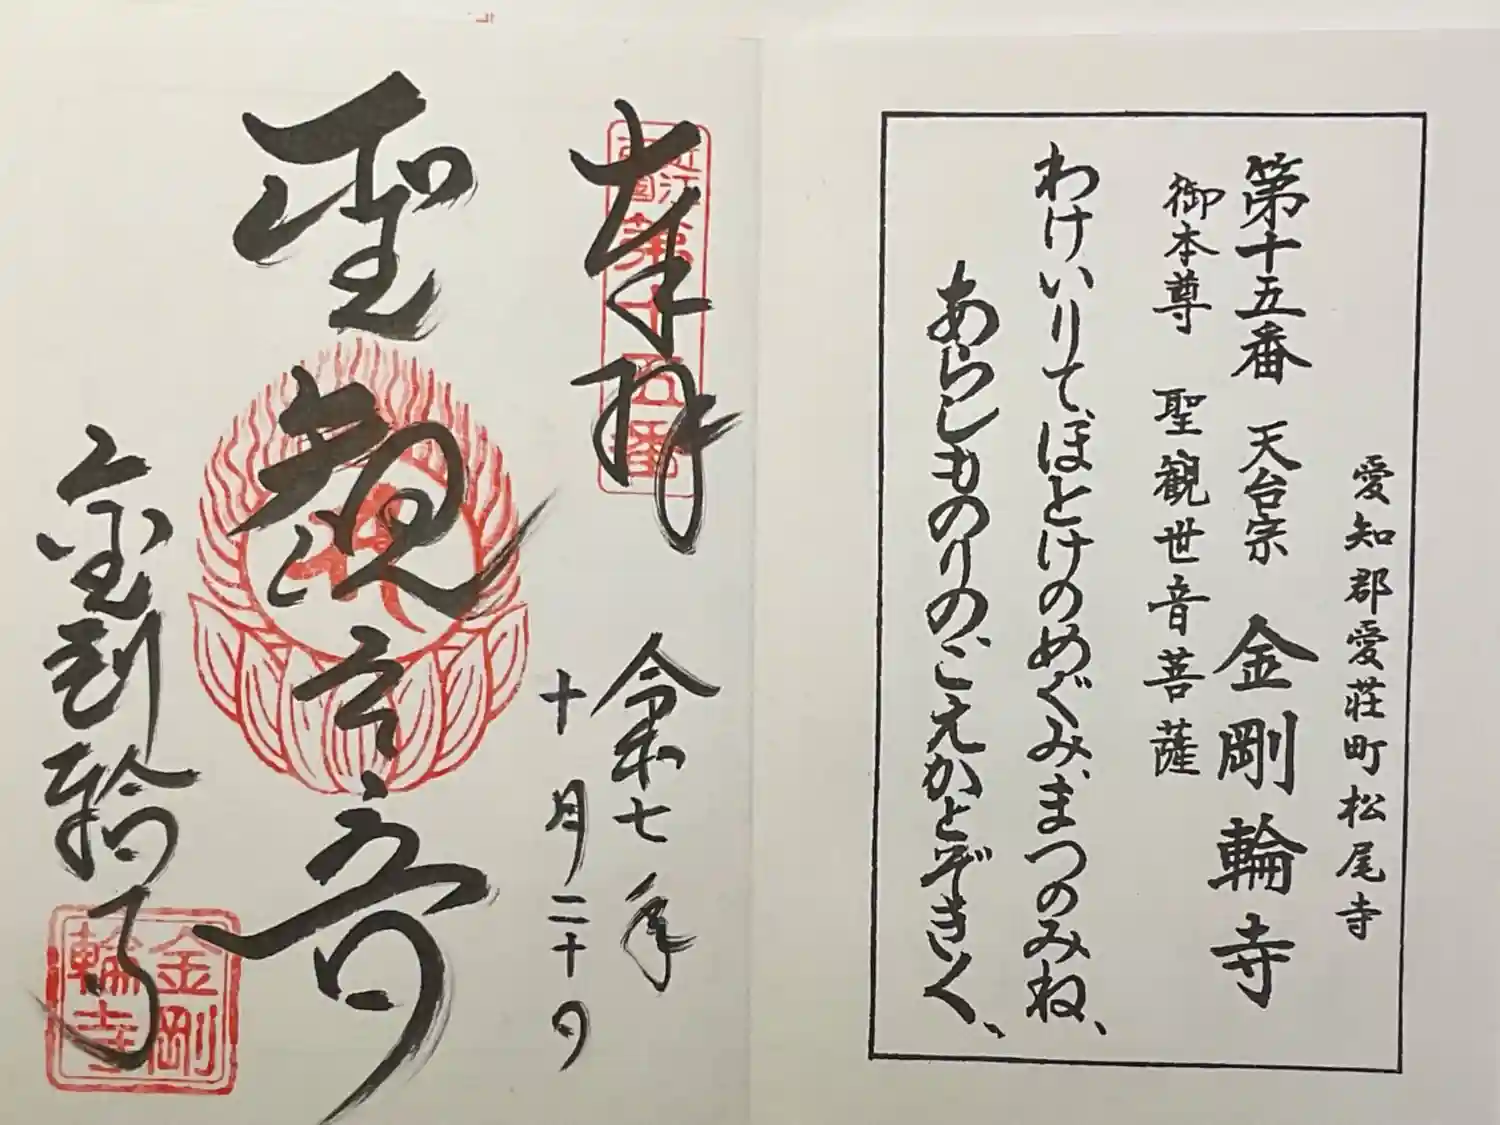 愛知郡愛荘町松尾寺
第十五番 天台宗 金剛輪寺
御本尊 聖観世音菩薩
わけいりて、ほとけのめぐみ、まつのみね、
あらしものりの、こえかとぞきく、
奉拝
近江
西国
第十五番
令和七年
十月二十日
聖観音
金剛輪寺
金剛
輪寺